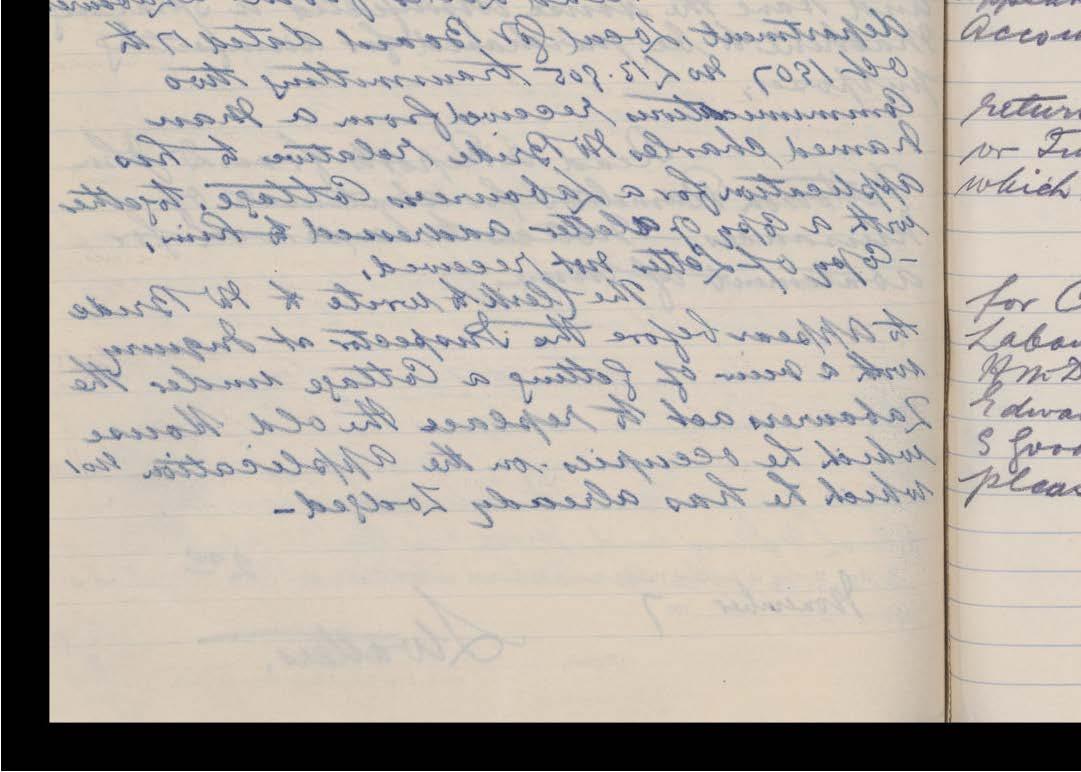 Department Local Gov Board dated 17th
Oct 1907 No L 15.905 transmitting two
Communications received from a Man
Named Charles McBride relative to his
application for a Labourers Cottage, together
with a Copy of letter addressed to him,
- Copy of Letter not received,
The Clerk to write to McBride
to appear before the Inspector at Inquiry
with a view of getting a Cottage under the
Labourers act to replace the old House
which he occupies on the application
which he has already Lodged -
November 7
Accou
return
or Tr
which
for C
Labou
Edwa
S Good
pleas